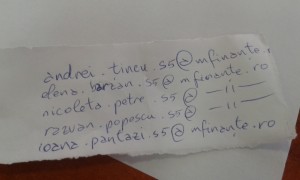 andrei.tincu.s5@mfinante.
elena.barzan.s5@mfinante.ro
nicoleta.petre.s5@ —11—
razvan.popescu.s5@ —11—
ioana.pantazi.s5@mfinante.ro